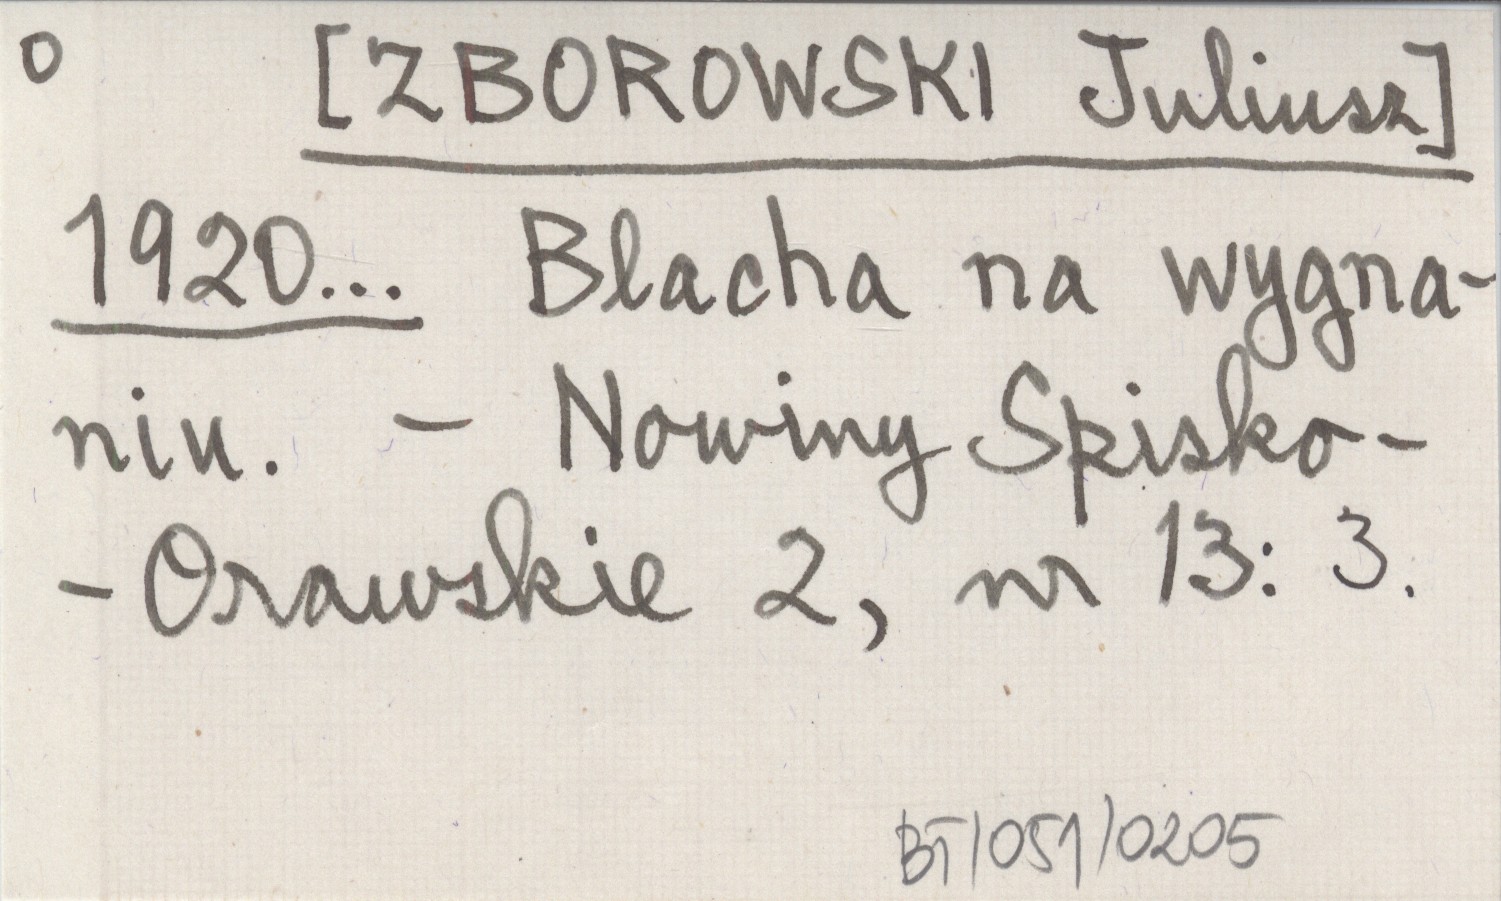 o [ZBOROWSKI Juliusz]
1920... Blacha na wygna-
niu. - Nowiny Spisko-
-Orawskie 2, nr 13: 3.
BT/051/0205